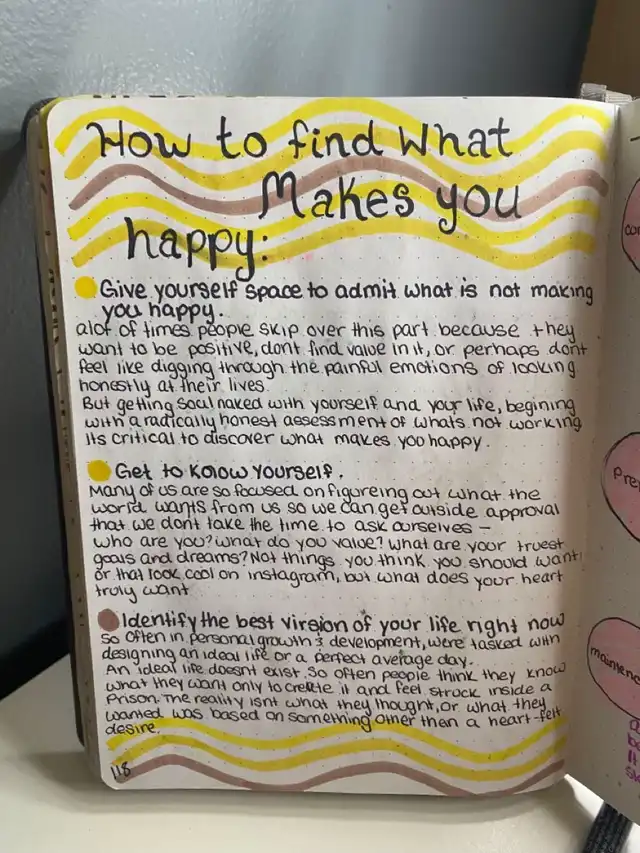 How to find What
Makes you
happy:
Give yourself space to admit what is not making
you happy.
alot of times people skip over this part because they
want to be positive, dont find value in it, or perhaps dont
feel like digging through the painful emotions of looking
honestly at their lives.
But getting soul naked with yourself and your life, begining
with a radically honest assessment of whats not working
Its critical to discover what makes you happy.
Get to know yourself.
Many of us are so focused on figureing out what the
world wants from us so we can get outside approval
that we dont take the time to ask ourselves –
who are you? what do you value? What are your truest
goals and dreams? Not things you think you should want
or that look cool on instagram, but what does your heart
truly want
Identify the best virsion of your life right now
so often in personal growth & development, were tasked with
designing an ideal life or a perfect average day.
An ideal life doesnt exist. So often people think they know
what they want only to create it and feel struck inside a
Prison. The reality isnt what they thought, or what they
wanted was based on something other then a heart-felt
desire.
118